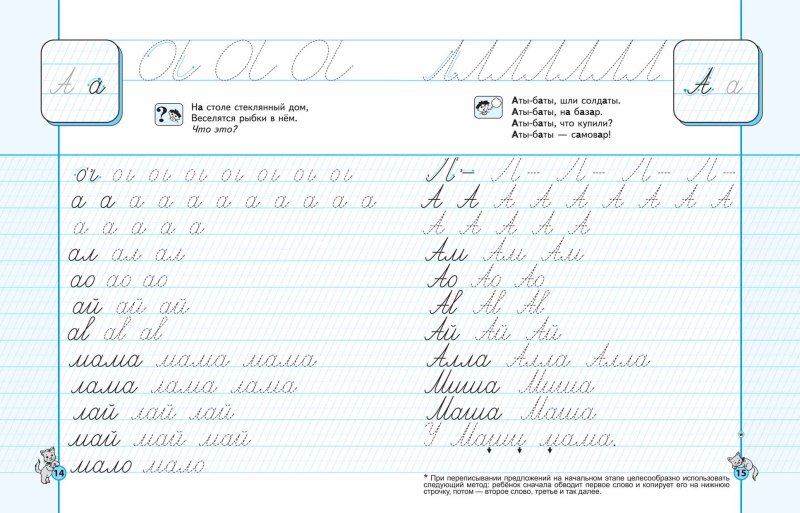 А а
а а а
? На столе стеклянный дом,
Веселятся рыбки в нём.
Что это?
а а а а а а а а а а а а
а а а а а
ал ал ал
ао ао ао
ай ай ай
ав ав ав
мама мама мама
лама лама лама
лай лай лай
май май май
мало мало
14
А а
Аты-баты, шли солдаты.
Аты-баты, на базар.
Аты-баты, что купили?
Аты-баты — самовар!
А А А А А А А А А
А А А А А
Ам Ам Ам
Ао Ао Ао
Ав Ав Ав
Ай Ай Ай
Алла Алла Алла
Миша Миша
Маша Маша
У Маши мама.
15
* При переписывании предложений на начальном этапе целесообразно использовать
следующий метод: ребёнок сначала обводит первое слово и копирует его на нижнюю
строчку, потом — второе слово, третье и так далее.